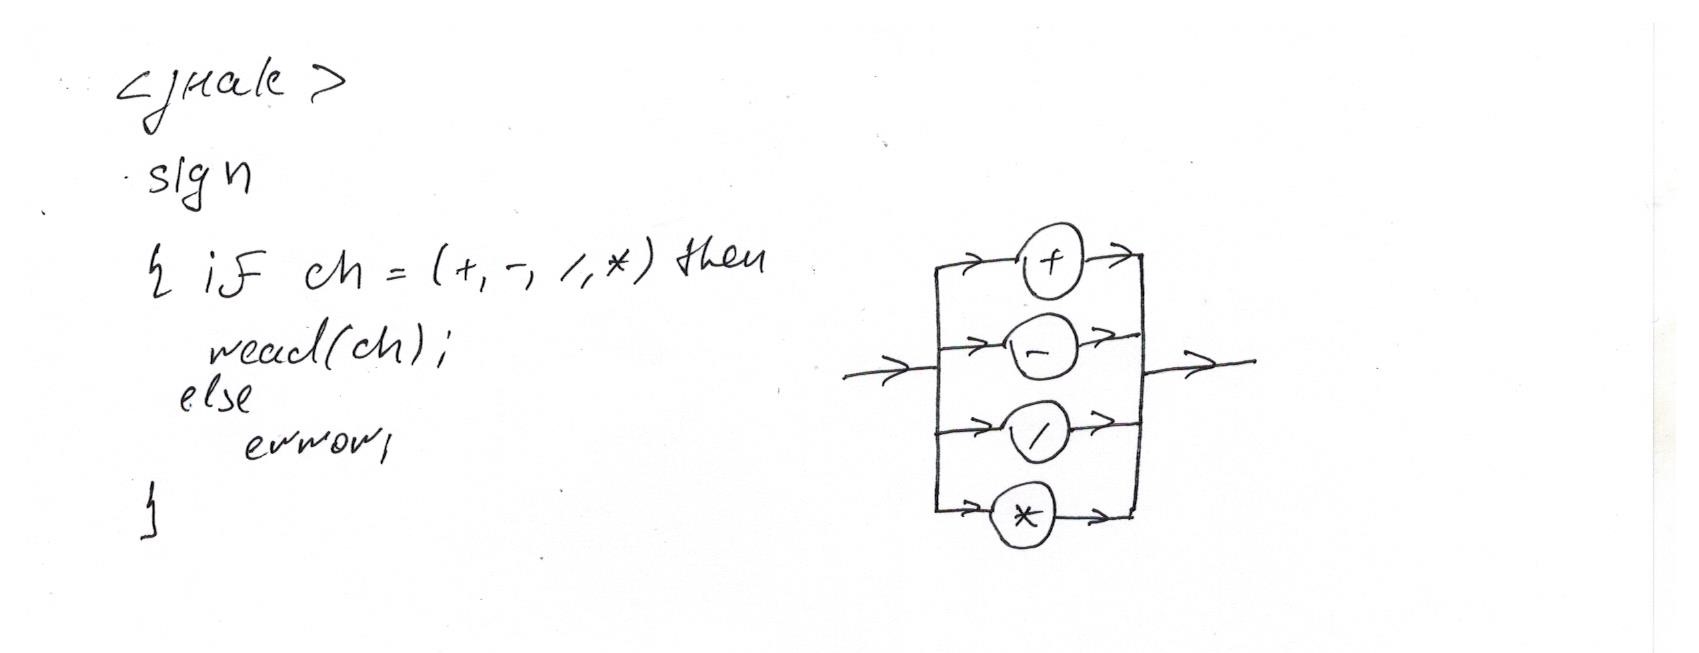 <знак>
sign
{ if ch = (+, -, /, *) then
read(ch);
else
error;
}
+
-
/
*